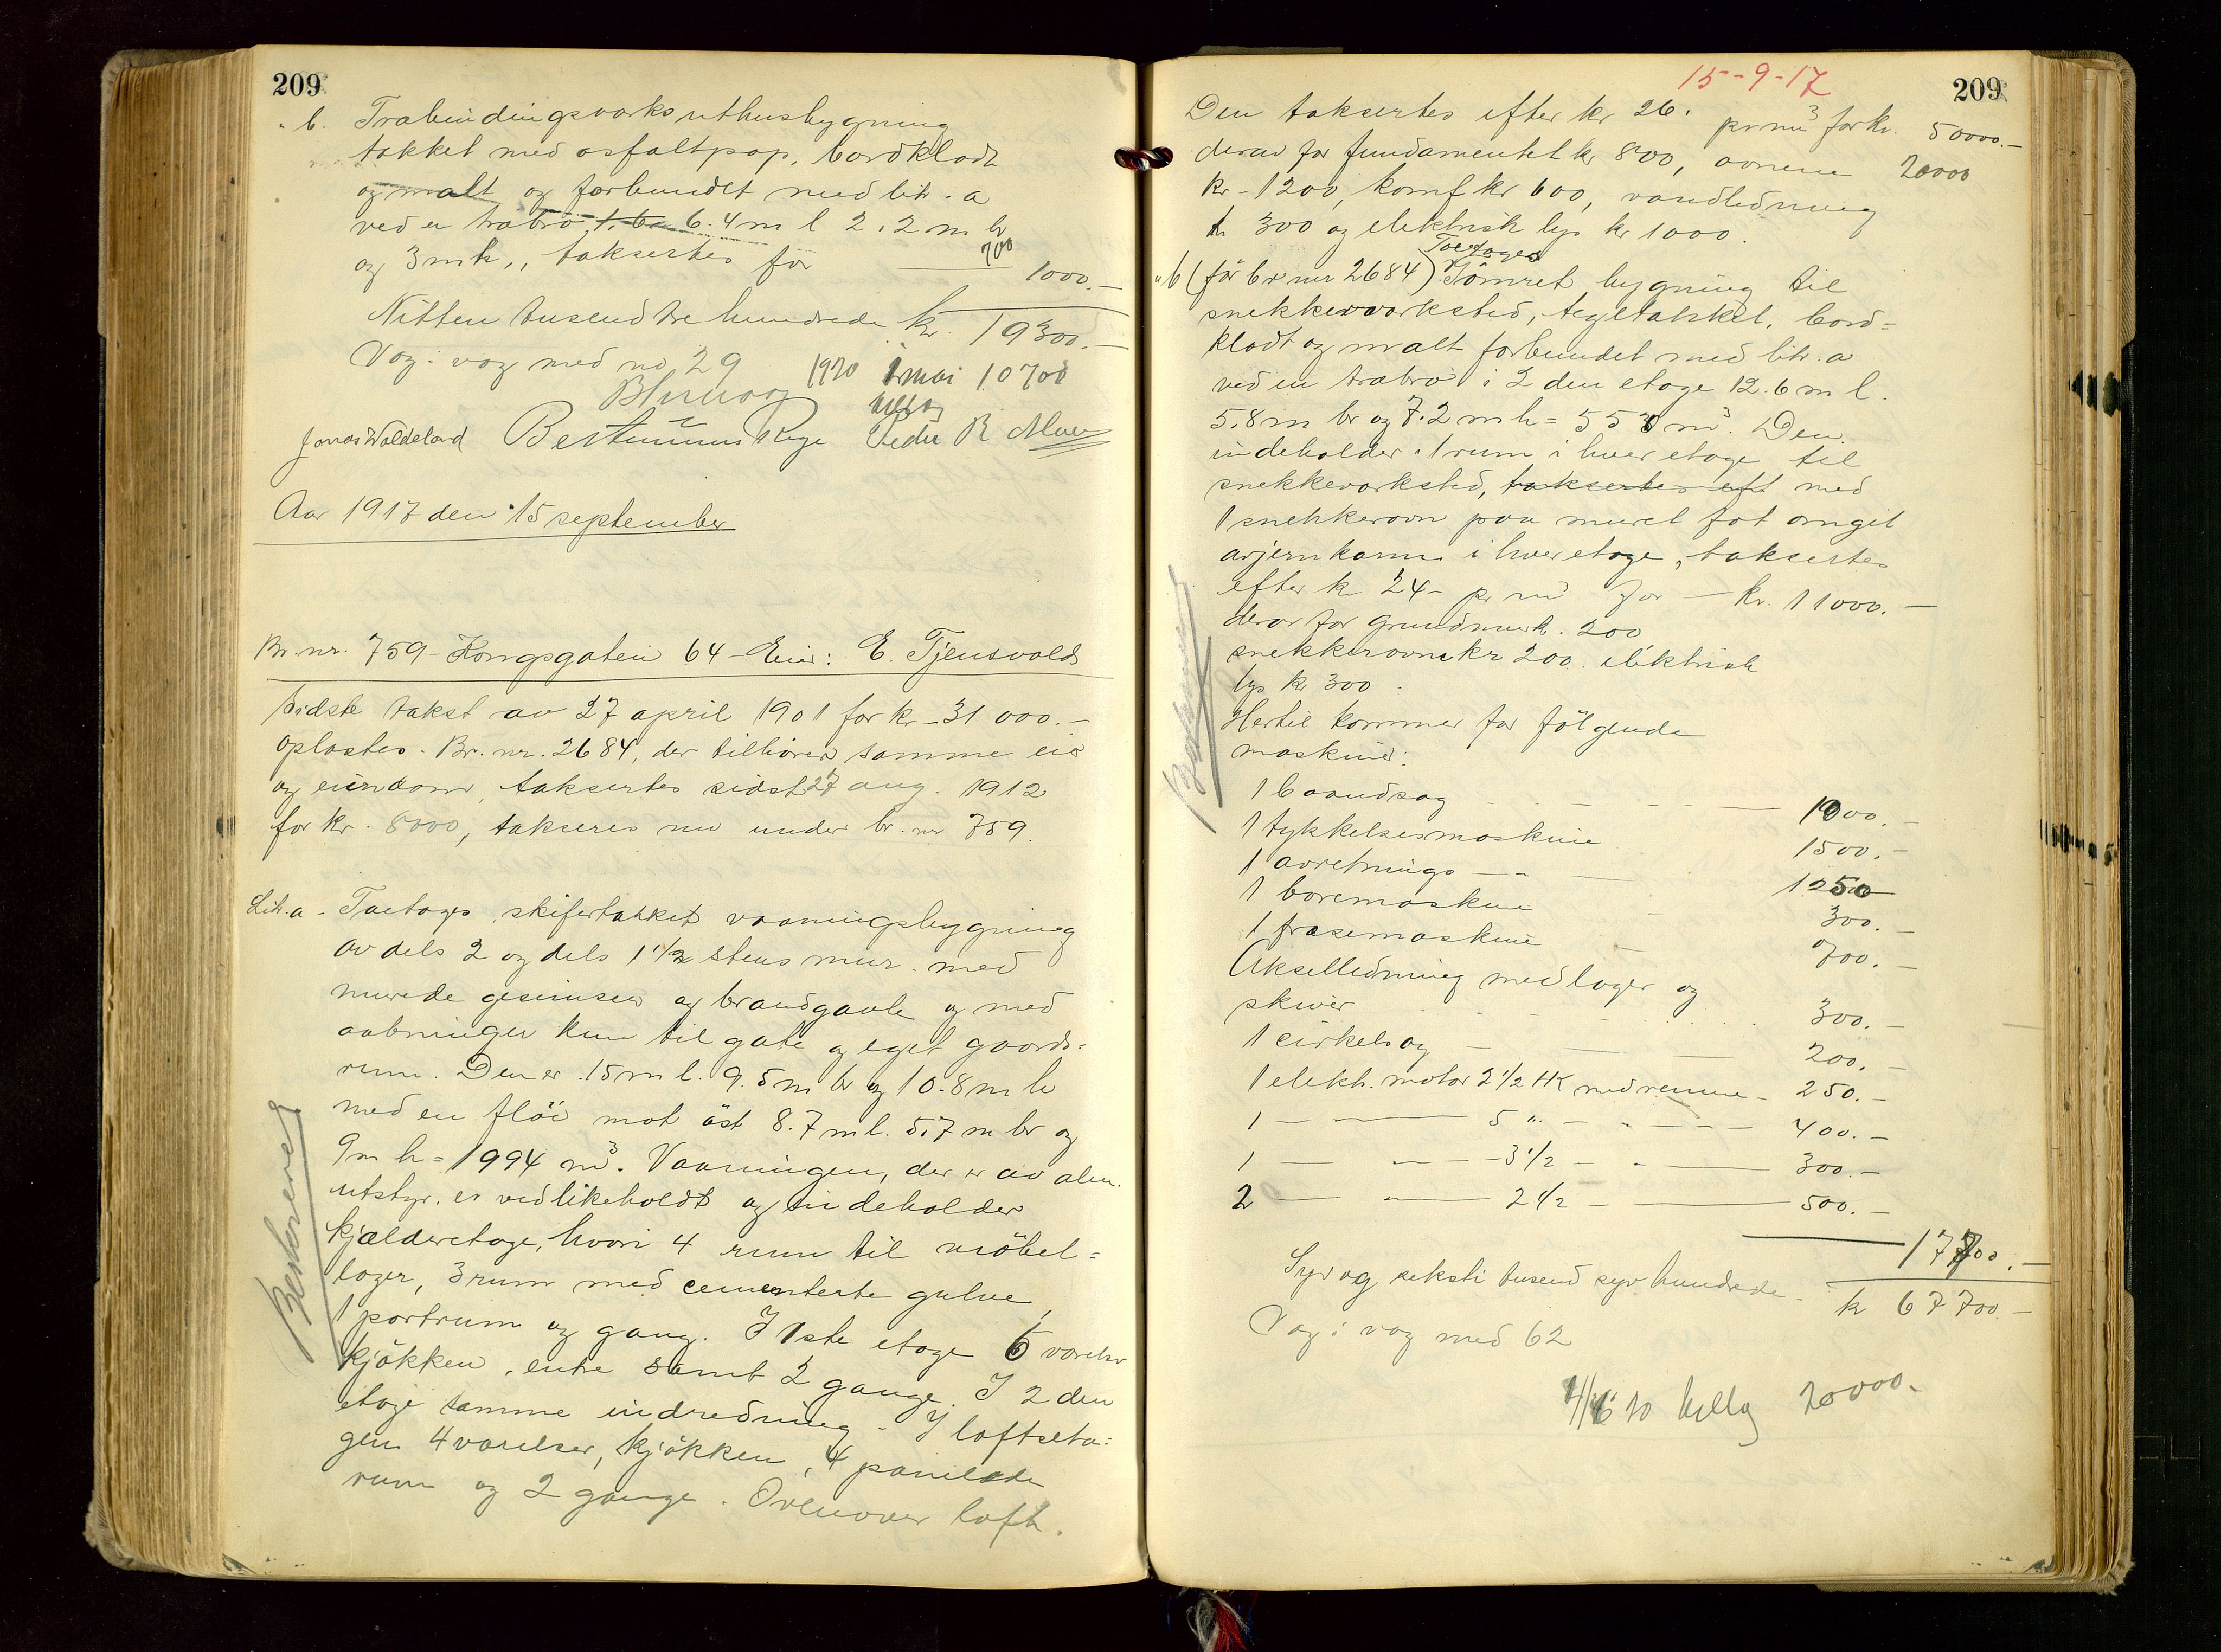 209
" b. Træbindingsværks uthusbygning
tækket med asfaltpap, bordklædt
og malt og forbundet med litr. a
ved en træbro, 6.4 m l 2.2 m br
og 3 m h., taksertes for 700 1000.-
Nitten tusend tre hundrede kr. 19300.-
Væg i væg med no 29
1920 1 mai 10700
tillæg
Jonas Waldeland
Aar 1917 den 15 september
Br. nr. 759 - Kongsgaten 64 - Eier: E. Tjensvold
Sidste takst av 27 april 1901 for kr - 31 000.-
oplæstes. Br. nr. 2684, der tilhører samme eier
og eiendom, taksertes sidst 27 aug. 1912
for kr. 8000, takseres nu under br. nr 759.
Litr. a - Toetages, skifertækket vaaningsbygning
av dels 2 og dels 1 1/2 stens mur. med
murede gesimser og brandgavle og med
aabninger kun til gate og eget gaards=
rum. Den er 15 m l. 9.5 m br og 10.8 m h
med en fløi mot øst 8.7 m l. 5.7 m br og
9 m h = 1994 m³. Vaaningen, der er av alm.
utstyr. er vedlikeholdt og indeholder
kjælderetage, hvori 4 rum til møbel=
lager, 3 rum med cementerte gulve,
1 portrum og gang. I 1ste etage 6 værelser
kjøkken, entre samt 2 gange. I 2 den
etage samme indredning - I loftseta=
gen 4 værelser, kjøkken, 4 panelede
rum og 2 gange. Ovenover loft.
Beskrivelse
15-9-17
209
Den taksertes efter kr 26. pr m³ for kr. 50000.-
derav for fundamentet kr 800, ovnene 20000
kr - 1200, komf kr 600, vandledning
kr 300 og elektrisk lys kr 1000.
Toetages
" b (før br nr 2684) Tømret bygning til
snekkerværksted, tegltækket, bord=
klædt og malt forbundet med litr. a
ved en træbro i 2 den etage 12.6 m l.
5.8 m br og 7.2 m h = 550 m³. Den
indeholder 1 rum i hver etage til
snekkeværksted, taksertes eft med
1 snekkerovn paa muret fot omgit
av jernkarm i hver etage, taksertes
efter kr 24- pr m³ for - kr. 11000.-
derav for grundmur k. 200
snekkerovne kr 200. elektrisk
lys kr 300.
Hertil kommer for følgende
maskiner:
1 baandsag - - - 1000.-
1 tykkelsesmaskine 1500.-
1 avretnings - " - 1250
1 boremaskine - 300.-
1 fræsemaskine - 700.-
Akselledning med lager og
skiver - - - 300.-
1 cirkelsag - - - 200.-
1 elektr. motor 2 1/2 HK med remme - 250.-
1 - - 5 " - - - 400.-
1 - - 3 1/2 - - - 300.-
2 - - 2 1/2 - - 500.-
17700.-
Syv og seksti tusend syv hundrede - kr 67700-
Væg i væg med 62
20 tillæg 20000.-